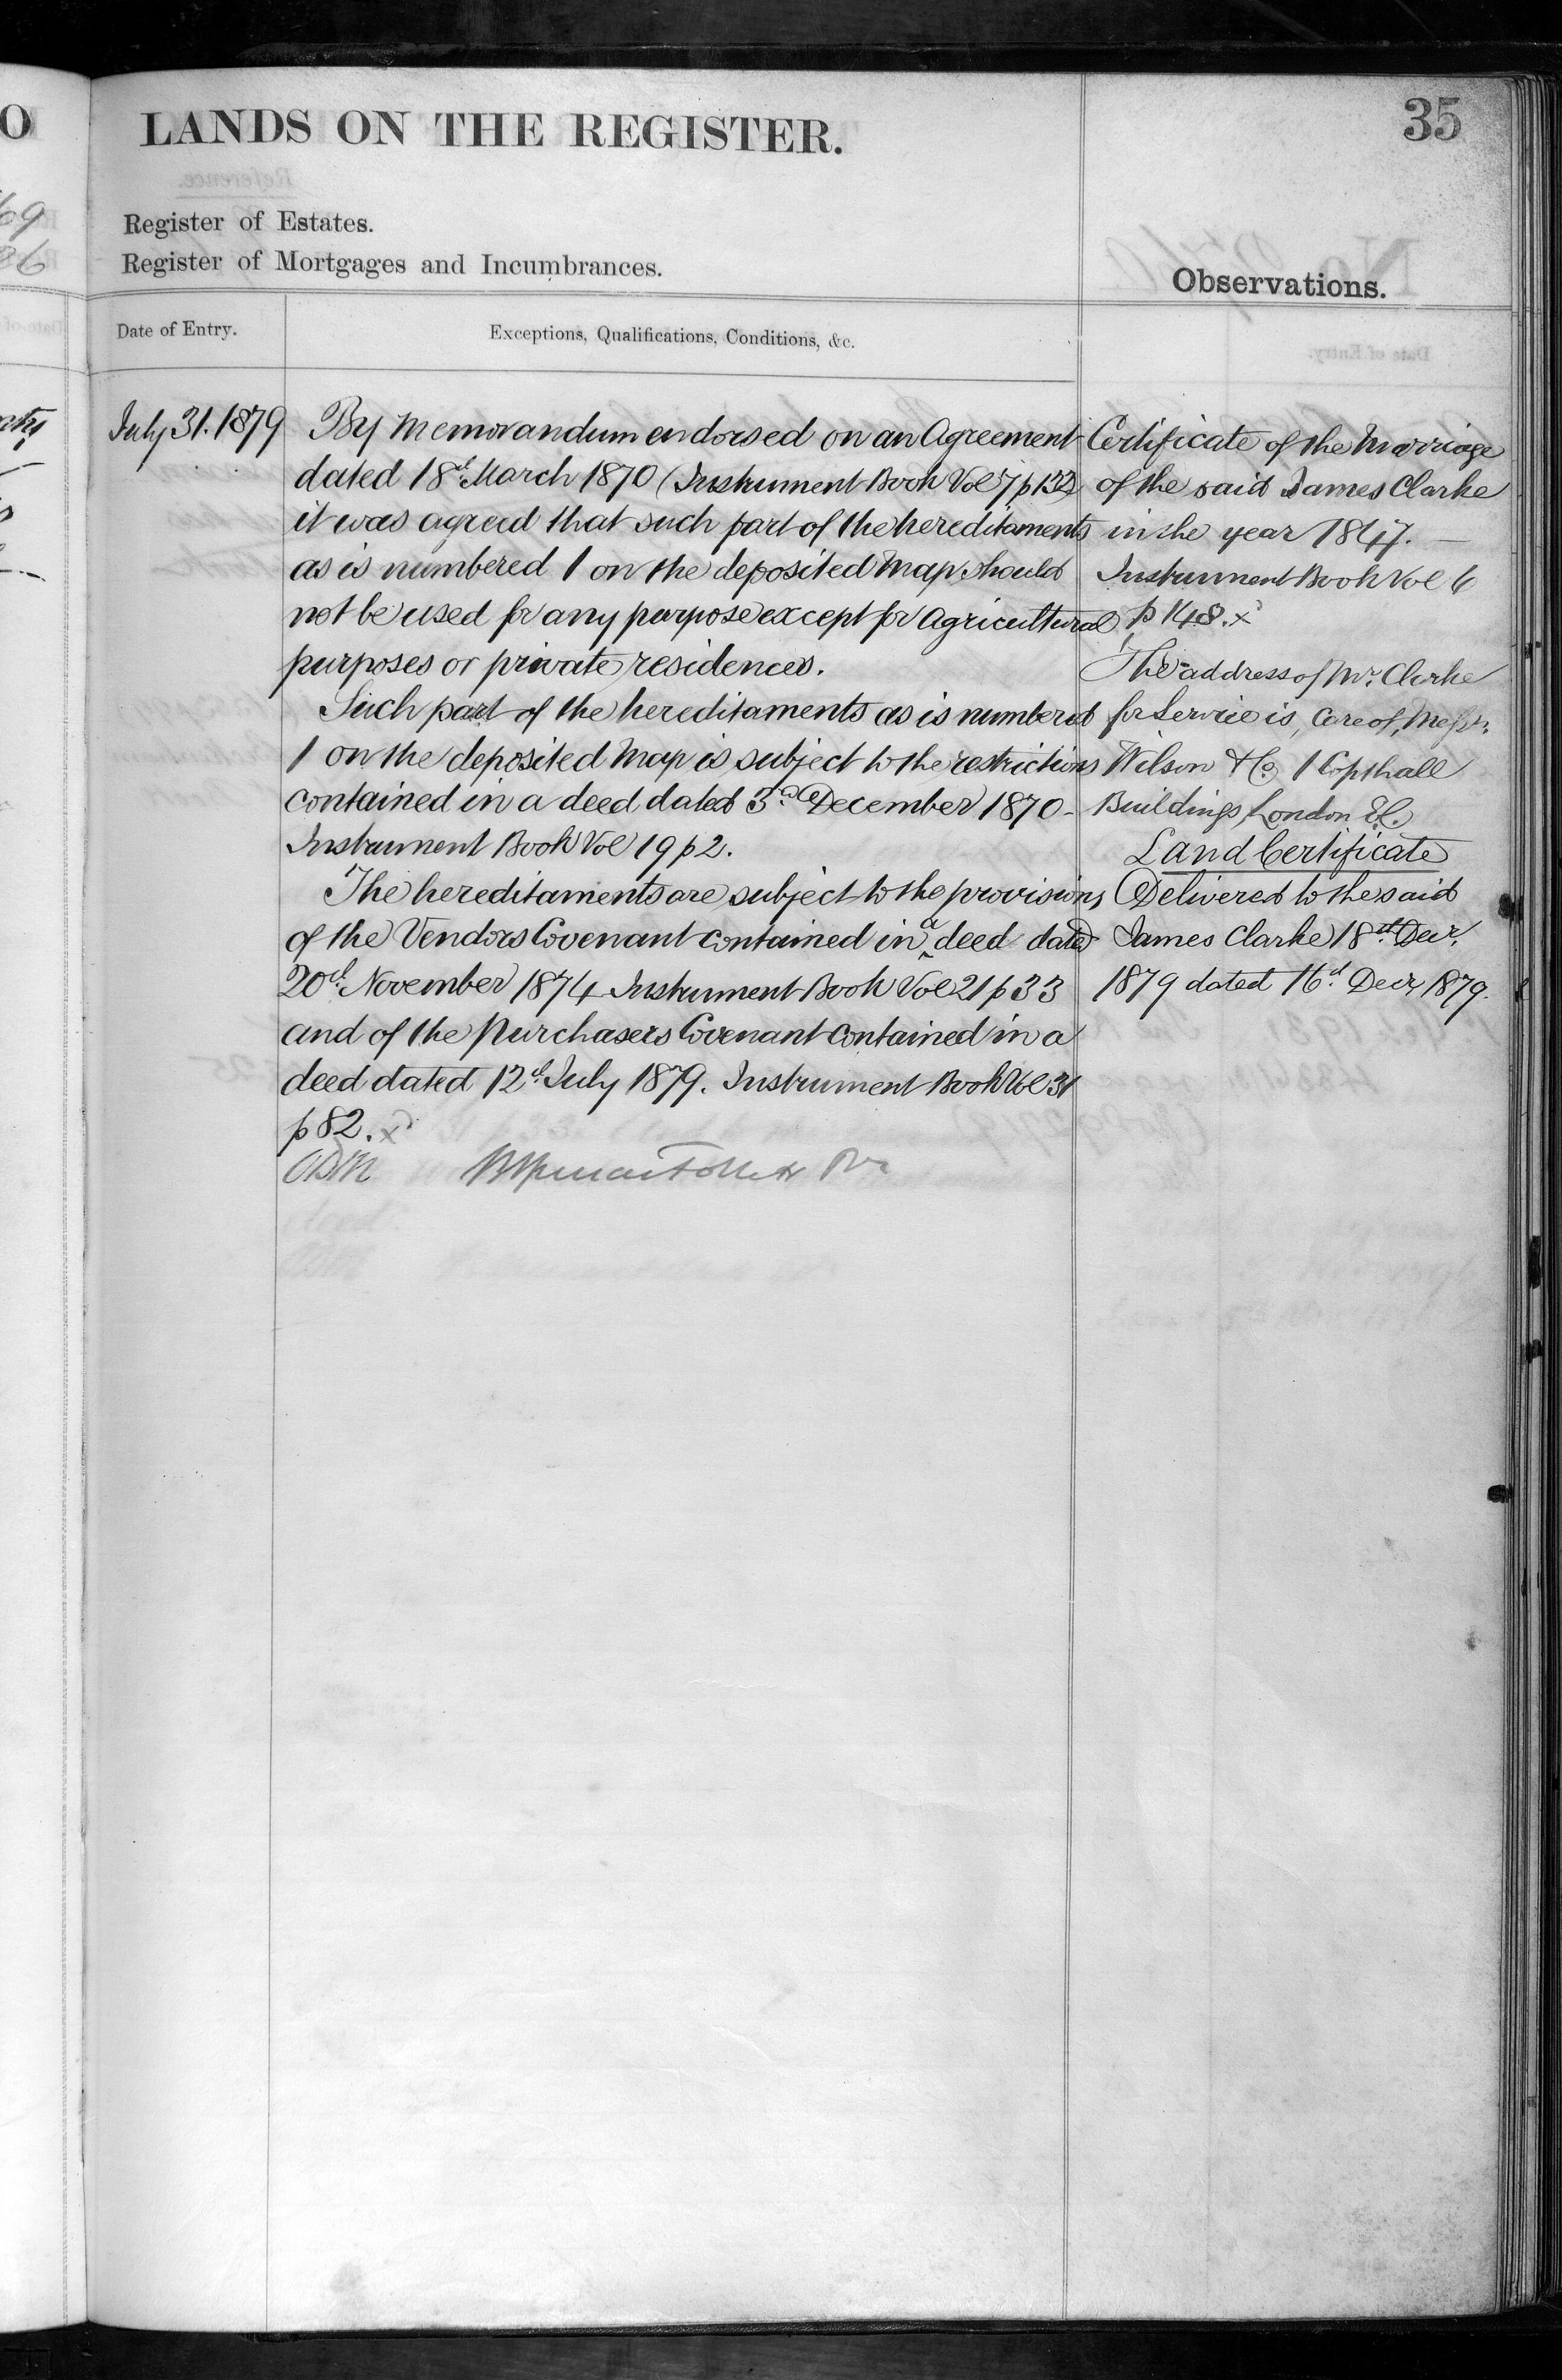 35
LANDS ON THE REGISTER.
Register of Estates.
Register of Mortgages and Incumbrances.
Observations.
Date of Entry.
Exceptions, Qualifications, Conditions, &c.
July 31. 1879
By Memorandum endorsed on an Agreement
dated 18th March 1870 (Instrument Book Vol 7 p 132)
it was agreed that such part of the hereditaments
as is numbered 1 on the deposited Map should
not be used for any purpose except for Agricultural
purposes or private residences.
Such part of the hereditaments as is numbered
1 on the deposited Map is subject to the restrictions
contained in a deed dated 3rd December 1870 -
Instrument Book Vol 19 p 2.
The hereditaments are subject to the provisions
of the Vendors Covenant contained in a deed dated
20th November 1874 Instrument Book Vol 21 p 33
and of the Purchasers Covenant contained in a
deed dated 12th July 1879. Instrument Book Vol 31
p 82. x
Certificate of the Marriage
of the said James Clarke
in the year 1847. —
Instrument Book Vol 6
p 148. x
The address of Mr. Clarke
for Service is, Care of, Messrs.
Wilson & Co 1 Copthall
Buildings London E.C.
Land Certificate
Delivered to the said
James Clarke 18th Decr.
1879 dated 16th Decr 1879.